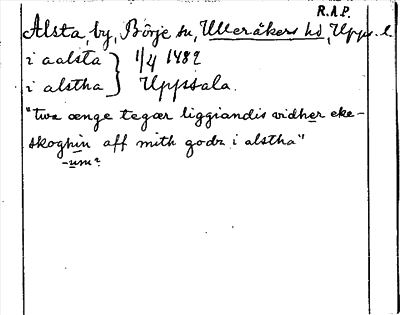 R.A.P.
Alsta, by, Börje sn, Ulleråkers hd, Upps. l.
i aalsta } 1/4 1482
i alstha } Uppsala.
"twa ænge tegær liggiandis widher eke-
skoghin aff mith godz i alstha"
-um?